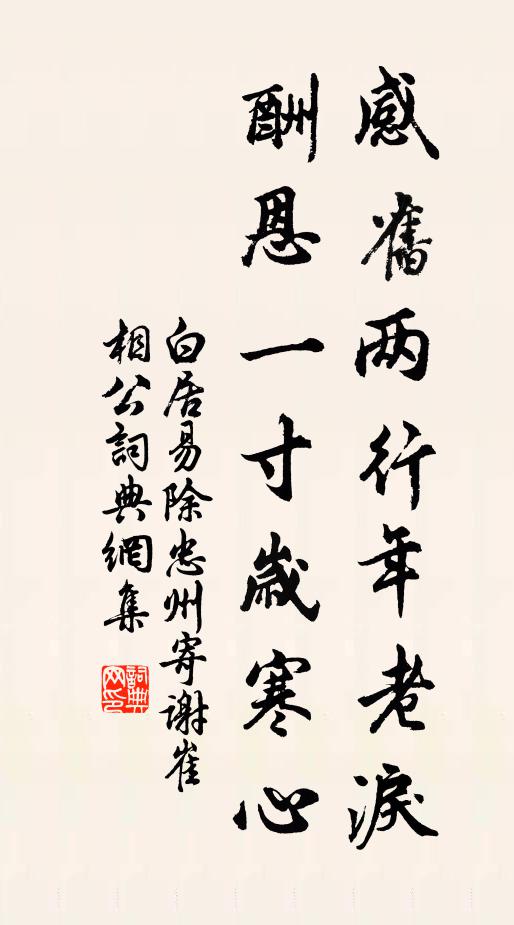 感舊两行年老淚
酬恩一寸歲寒心
白居易除忠州寄謝崔
相公詞典網集
詞典网印